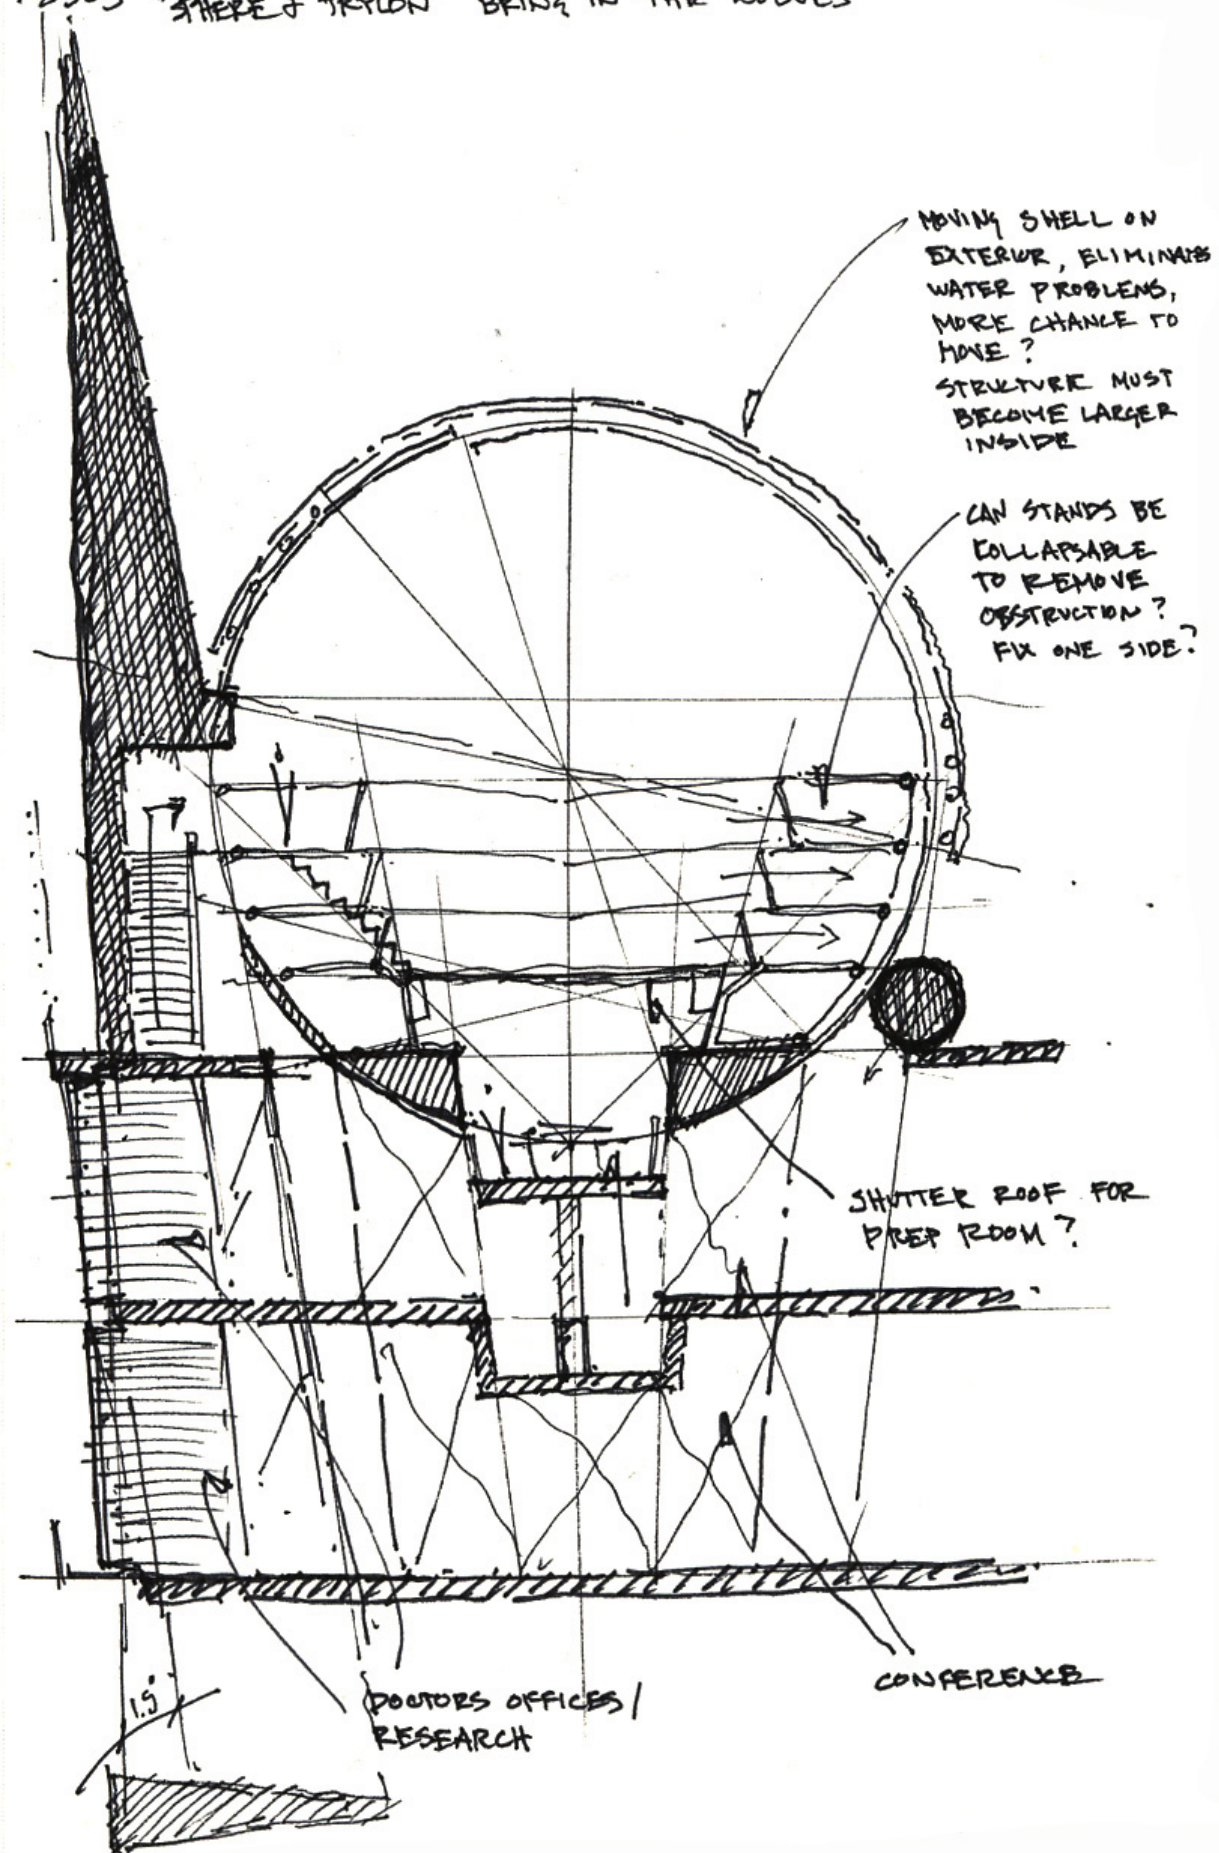 SPHERE & TRYLON BRING IN THE
MOVING SHELL ON
EXTERIOR, ELIMINATES
WATER PROBLEMS,
MORE CHANCE TO
MOVE?
STRUCTURE MUST
BECOME LARGER
INSIDE
CAN STANDS BE
COLLAPSABLE
TO REMOVE
OBSTRUCTION?
FIX ONE SIDE?
SHUTTER ROOF FOR
PREP ROOM?
CONFERENCE
DOCTORS OFFICES/
RESEARCH
1.5°